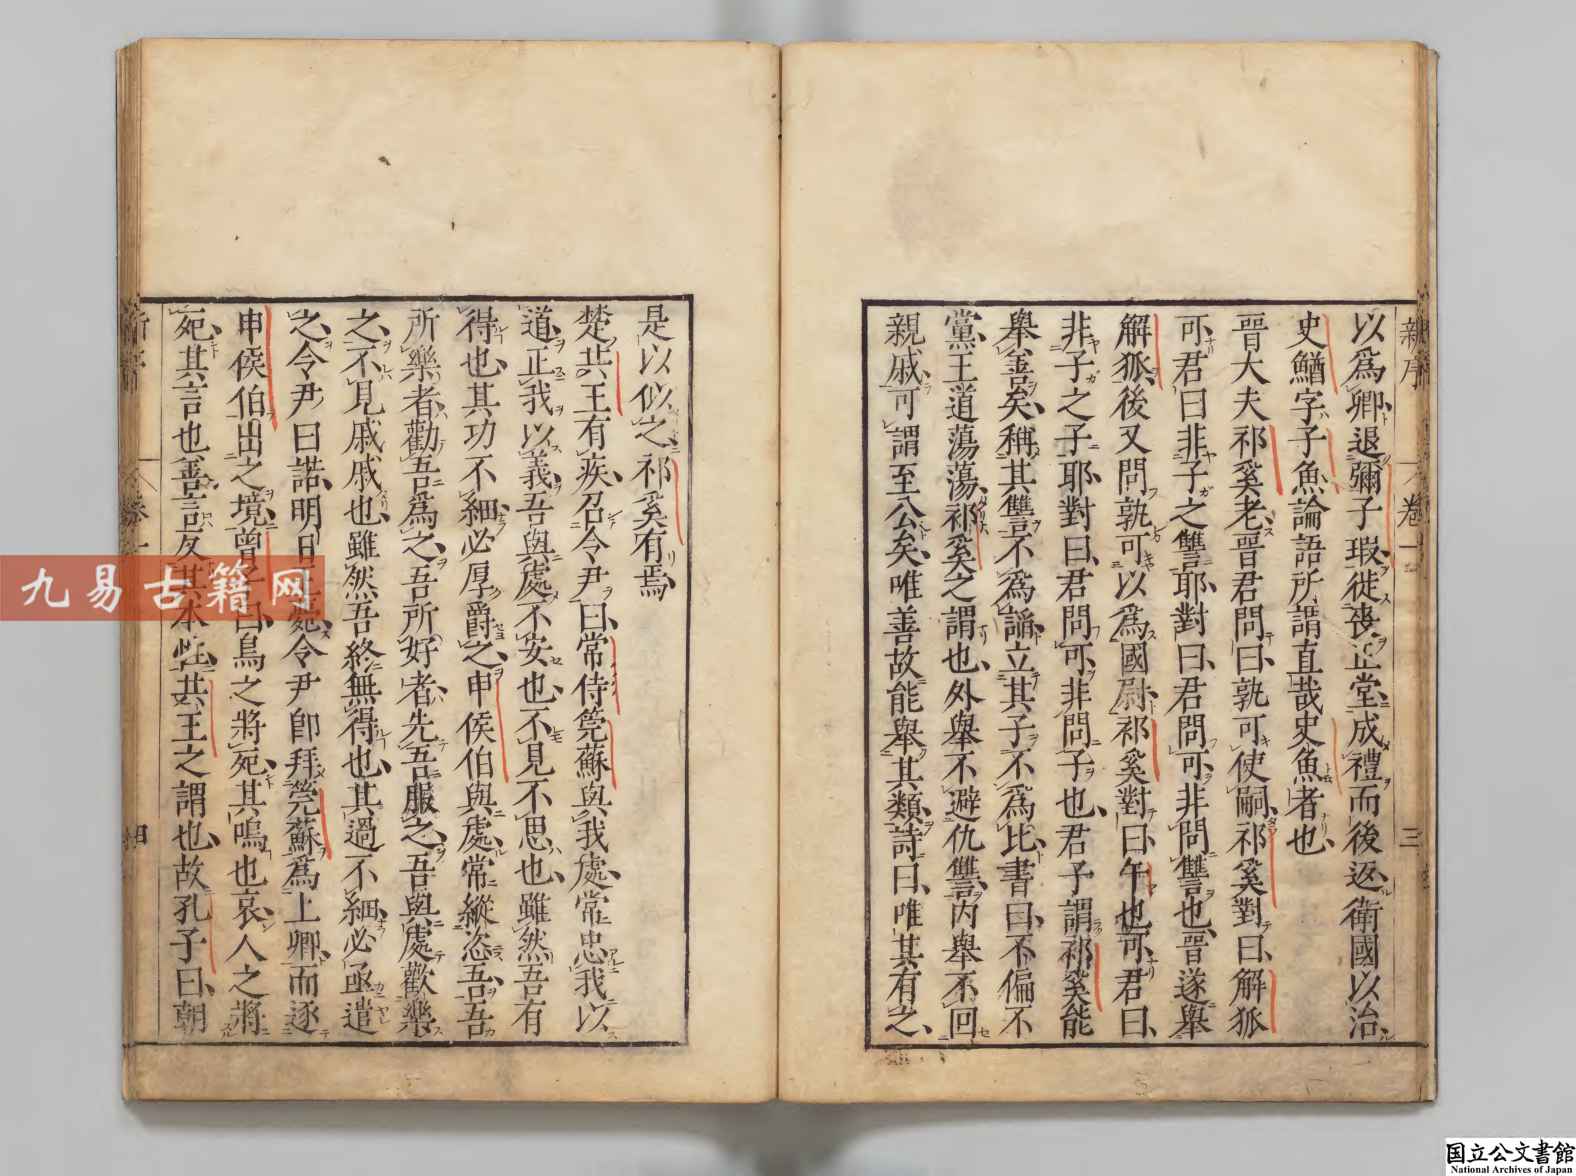 以爲卿退彌子瑕徙喪正堂成禮而後返衛國以治
史鰌字子魚論語所謂直哉史魚者也
晉大夫祁奚老晉君問曰孰可使嗣祁奚對曰解狐
可君曰非子之讐耶對曰君問可非問讐也晉遂舉
解狐後又問孰可以爲國尉祁奚對曰午也可君曰
非子之子耶對曰君問可非問子也君子謂祁奚能
舉善矣稱其讐不爲謟立其子不爲比書曰不偏不
黨王道蕩蕩祁奚之謂也外舉不避仇讐內舉不回
親戚可謂至公矣唯善故能舉其類詩曰唯其有之
是以似之祁奚有焉
楚共王有疾召令尹曰常侍筦蘇與我處常忠我以
道正我以義吾與處不安也不見不思也雖然吾有
得也其功不細必厚爵之申侯伯與處常縱恣吾吾
所樂者勸吾爲之吾所好者先吾服之吾與處歡樂
之不見戚戚也雖然吾終無得也其過不細必亟遣
之令尹曰諾明日王薨令尹卽拜筦蘇爲上卿而逐
申侯伯出之境曾子曰鳥之將死其鳴也哀人之將
死其言也善言反其本性共王之謂也故孔子曰朝
新序
卷一
三
九易古籍网
国立公文書館
National Archives of Japan